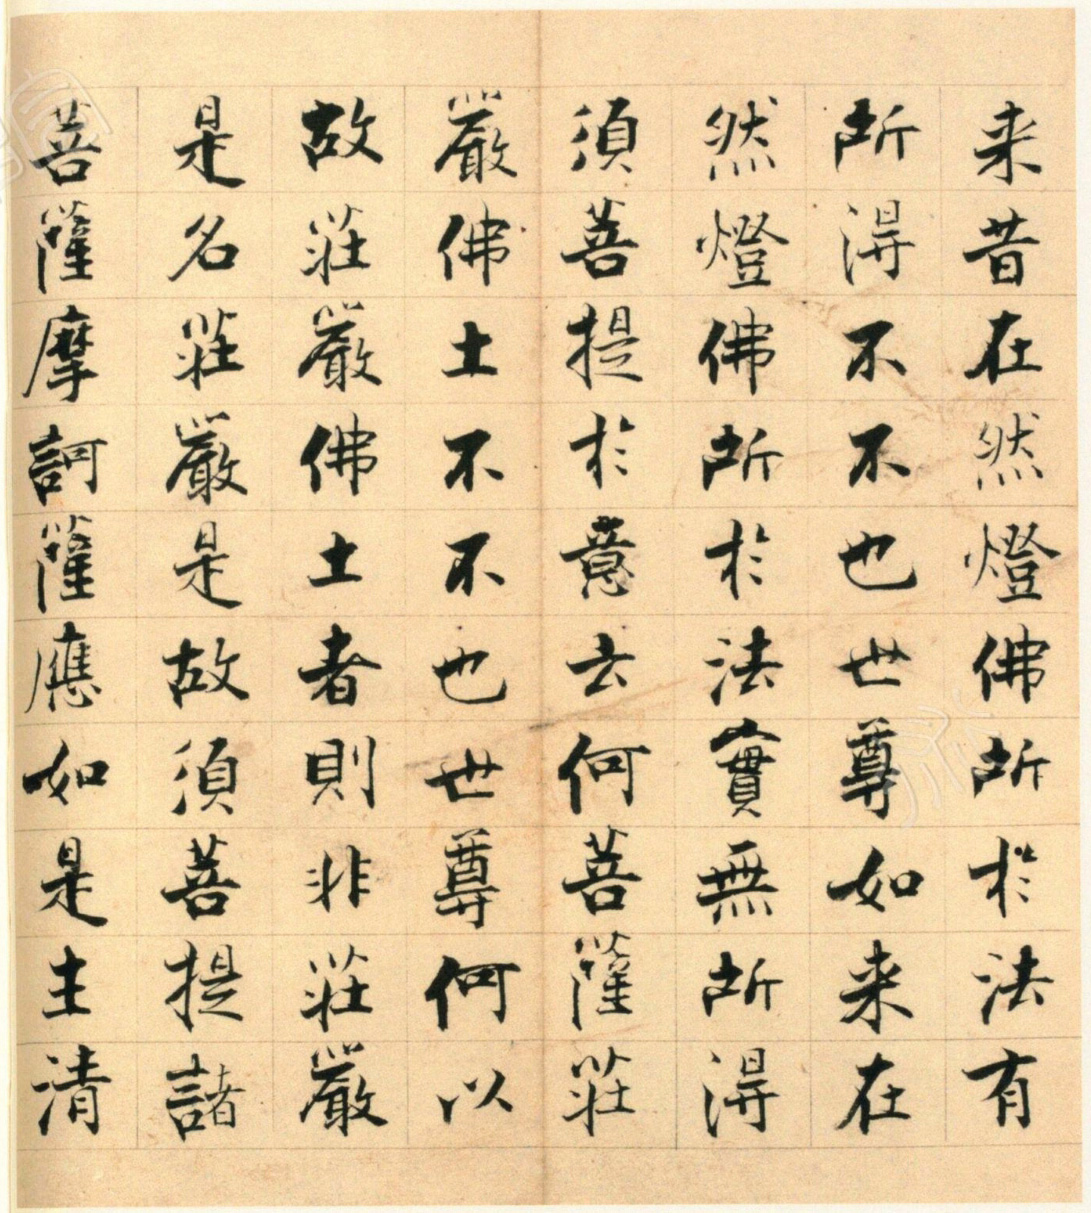 来昔在然燈佛所於法有
所得不不也世尊如来在
然燈佛所於法實無所得
須菩提於意云何菩薩莊
嚴佛土不不也世尊何以
故莊嚴佛土者則非莊嚴
是名莊嚴是故須菩提諸
菩薩摩訶薩應如是生清